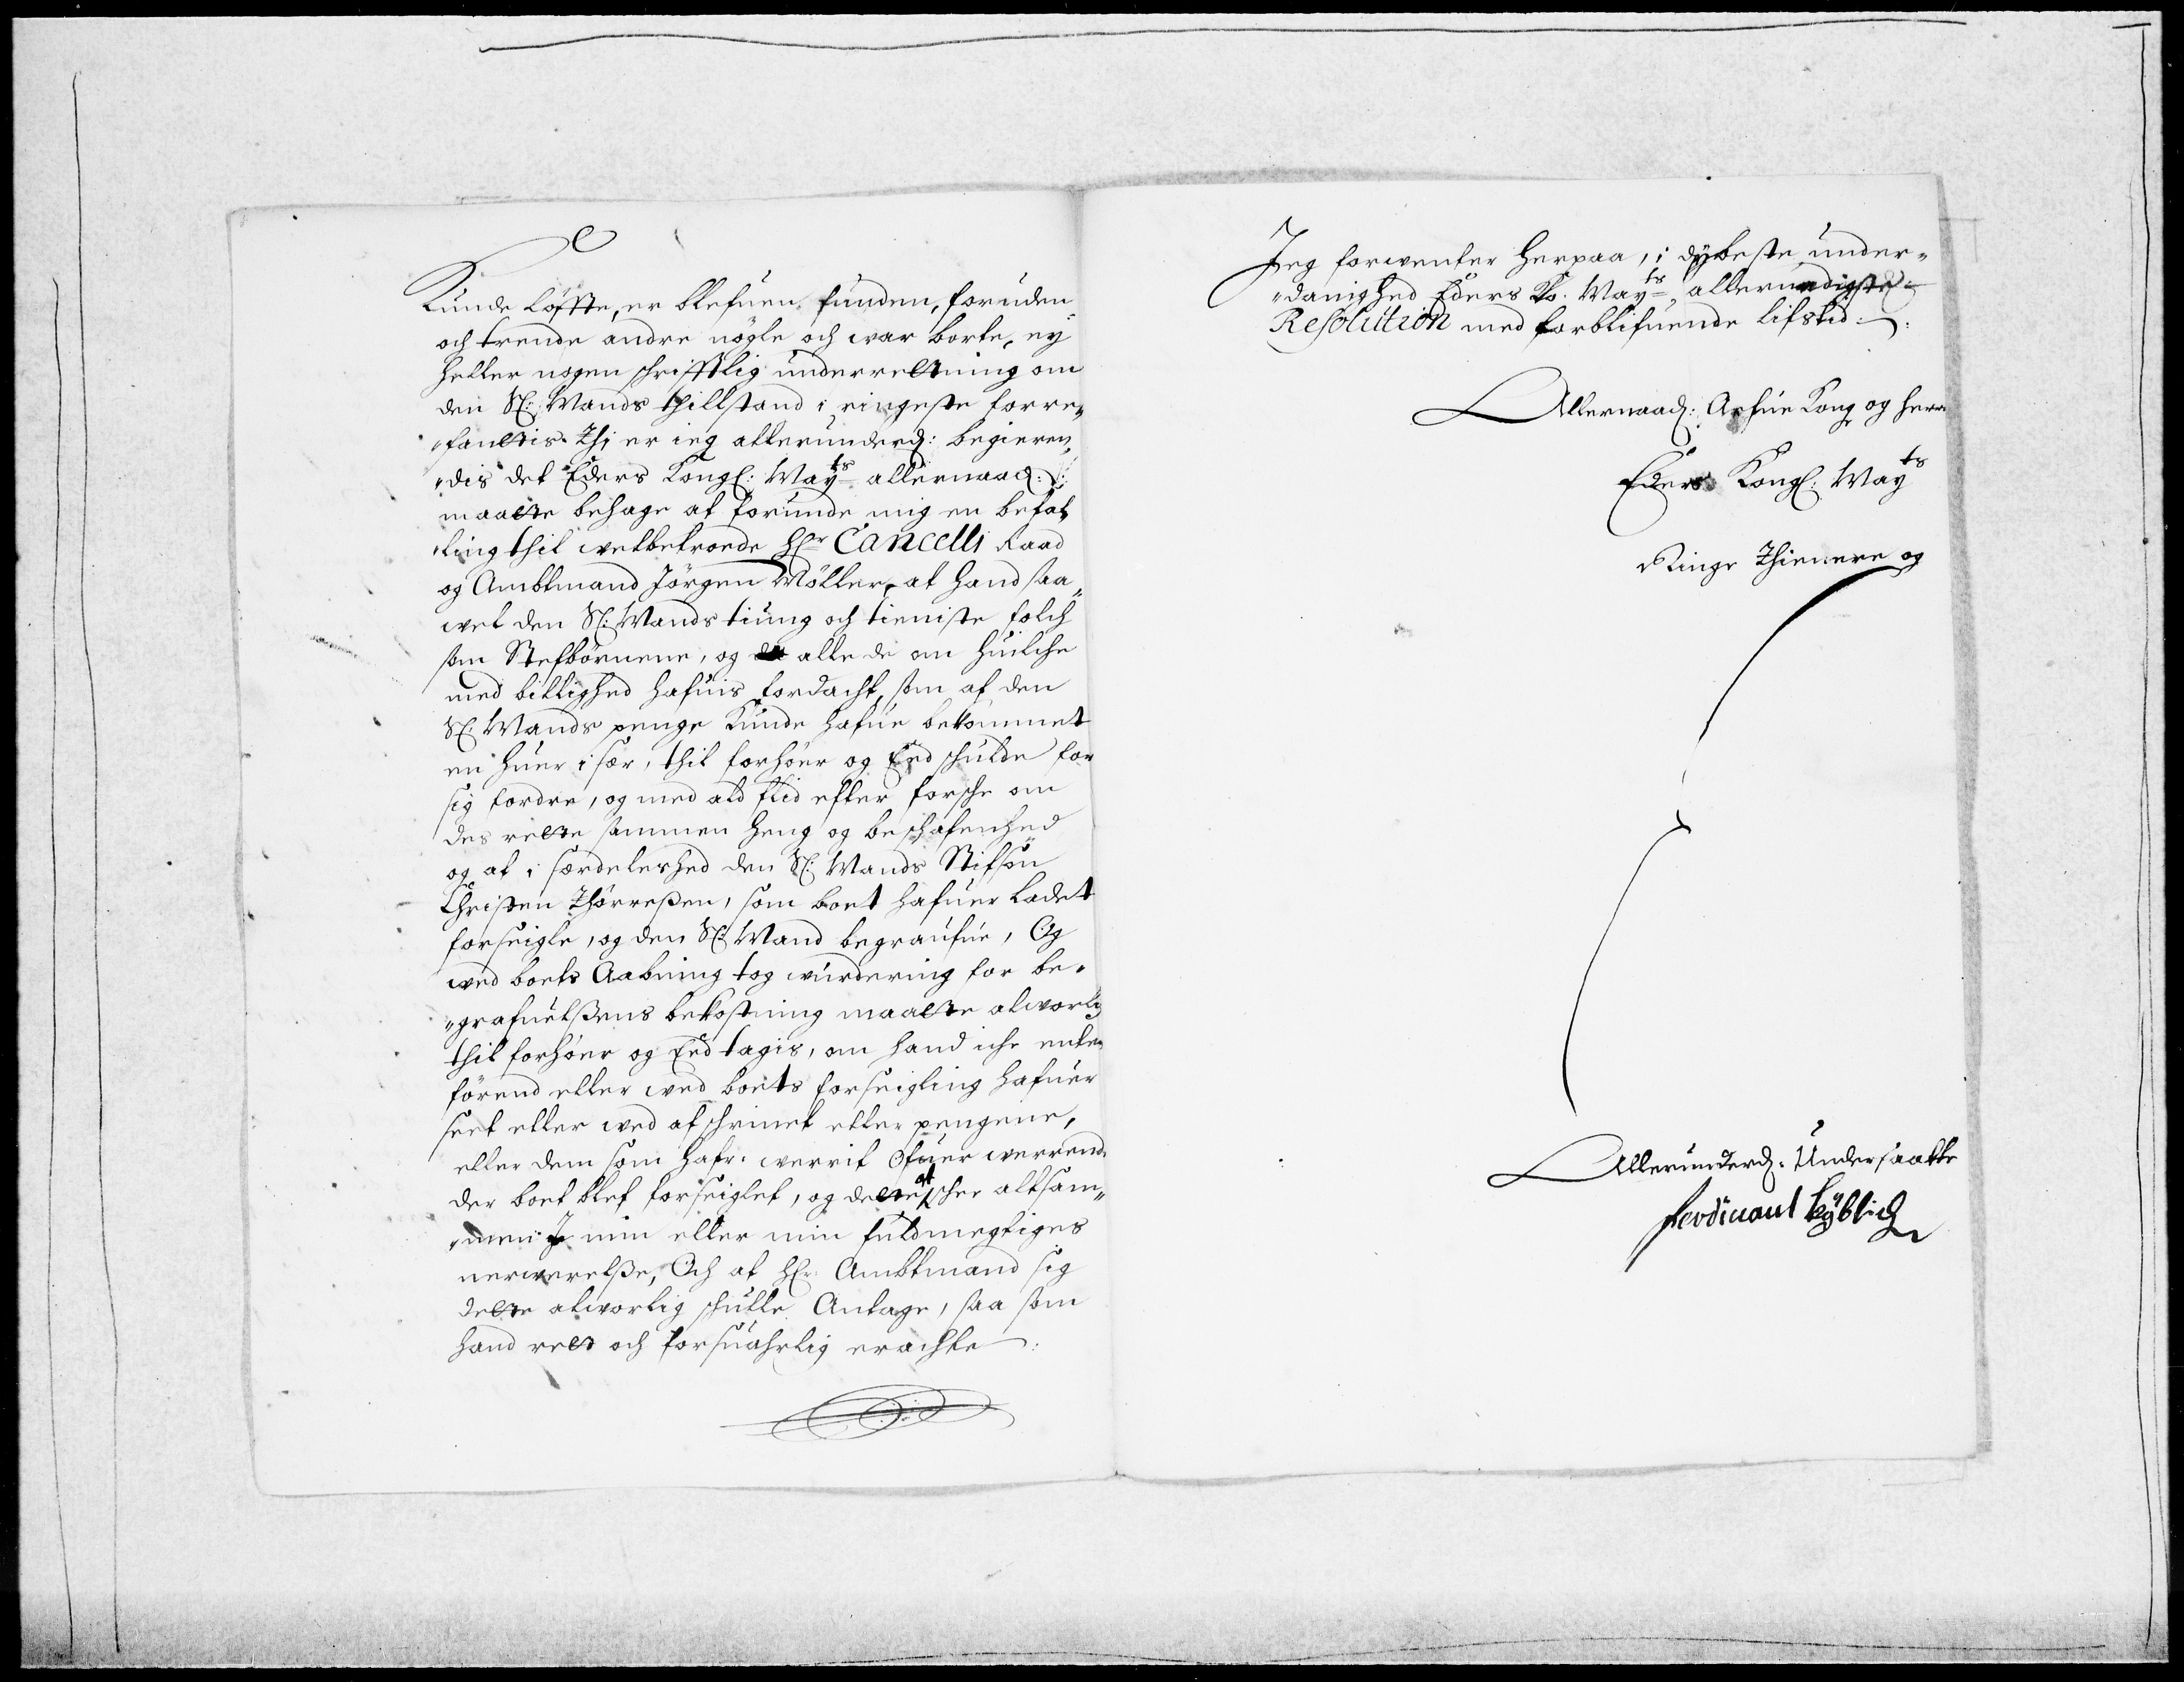 Kunde löffte, er blefuen funden, foruden
och trende andre nögle och war borte, ey
heller nogen schrifftlig underretning om
den Sl: Mands thillstand i ringeste forre„
„fantis. Thi er ieg allerunderd: begieren„
„dis det Eders Kongl: Mayts allernaad:
maatte behage at forunde mig en befal„
„ling thil welbetroede Hr Cancelli Raad
og Ambtmand Jörgen Möller, at hand saa„
wel den Sl: Mands tiung och tieniste folch
som Stefbörnene, og alle de om huilche
med billighed hafuis fordacht, som af den
Sl: Mands penge Kunde hafue bekommet
en huer i sær, thil forhöer og Eed schulde for
sig fordre, og med ald flid efter forsche om
des rette sammen heng og beschafenhed
og at i særdeleshed den Sl: Mands Stifsön
Christen Thörresßen, som boet hafuer ladet
forseigle, og den Sl: Mand begraufue, Og
wed boets Aabning tog wurdering for be„
„grafuelsßens bekostning maatte alworlig
thil forhöer og Eed tagis, om hand iche enten
förend eller wed boets forseigling hafuer
seet eller wed af schrinet eller pengene,
eller dem som hafr. werrit Ofuer werrende
der boet blef forseiglet, og dette at scher altsam„
„men i min eller min fuldmegtiges
nerwerelsße, Och at Hr. Ambtmand sig
dette alworlig schulle Antage, saa som
hand ret och forsuahrlig erachte
Jeg forwenter herpaa, i dybeste under„
„danighed Eders Ko. Mayts allernadigste
Resolution med forblifuende lifstid
Allernaad: Arfue Kong og herre
Eders Kongl: Mayts
Ringe Thienere og
Allerunderd: Undersaatte
ferdinant kÿblich